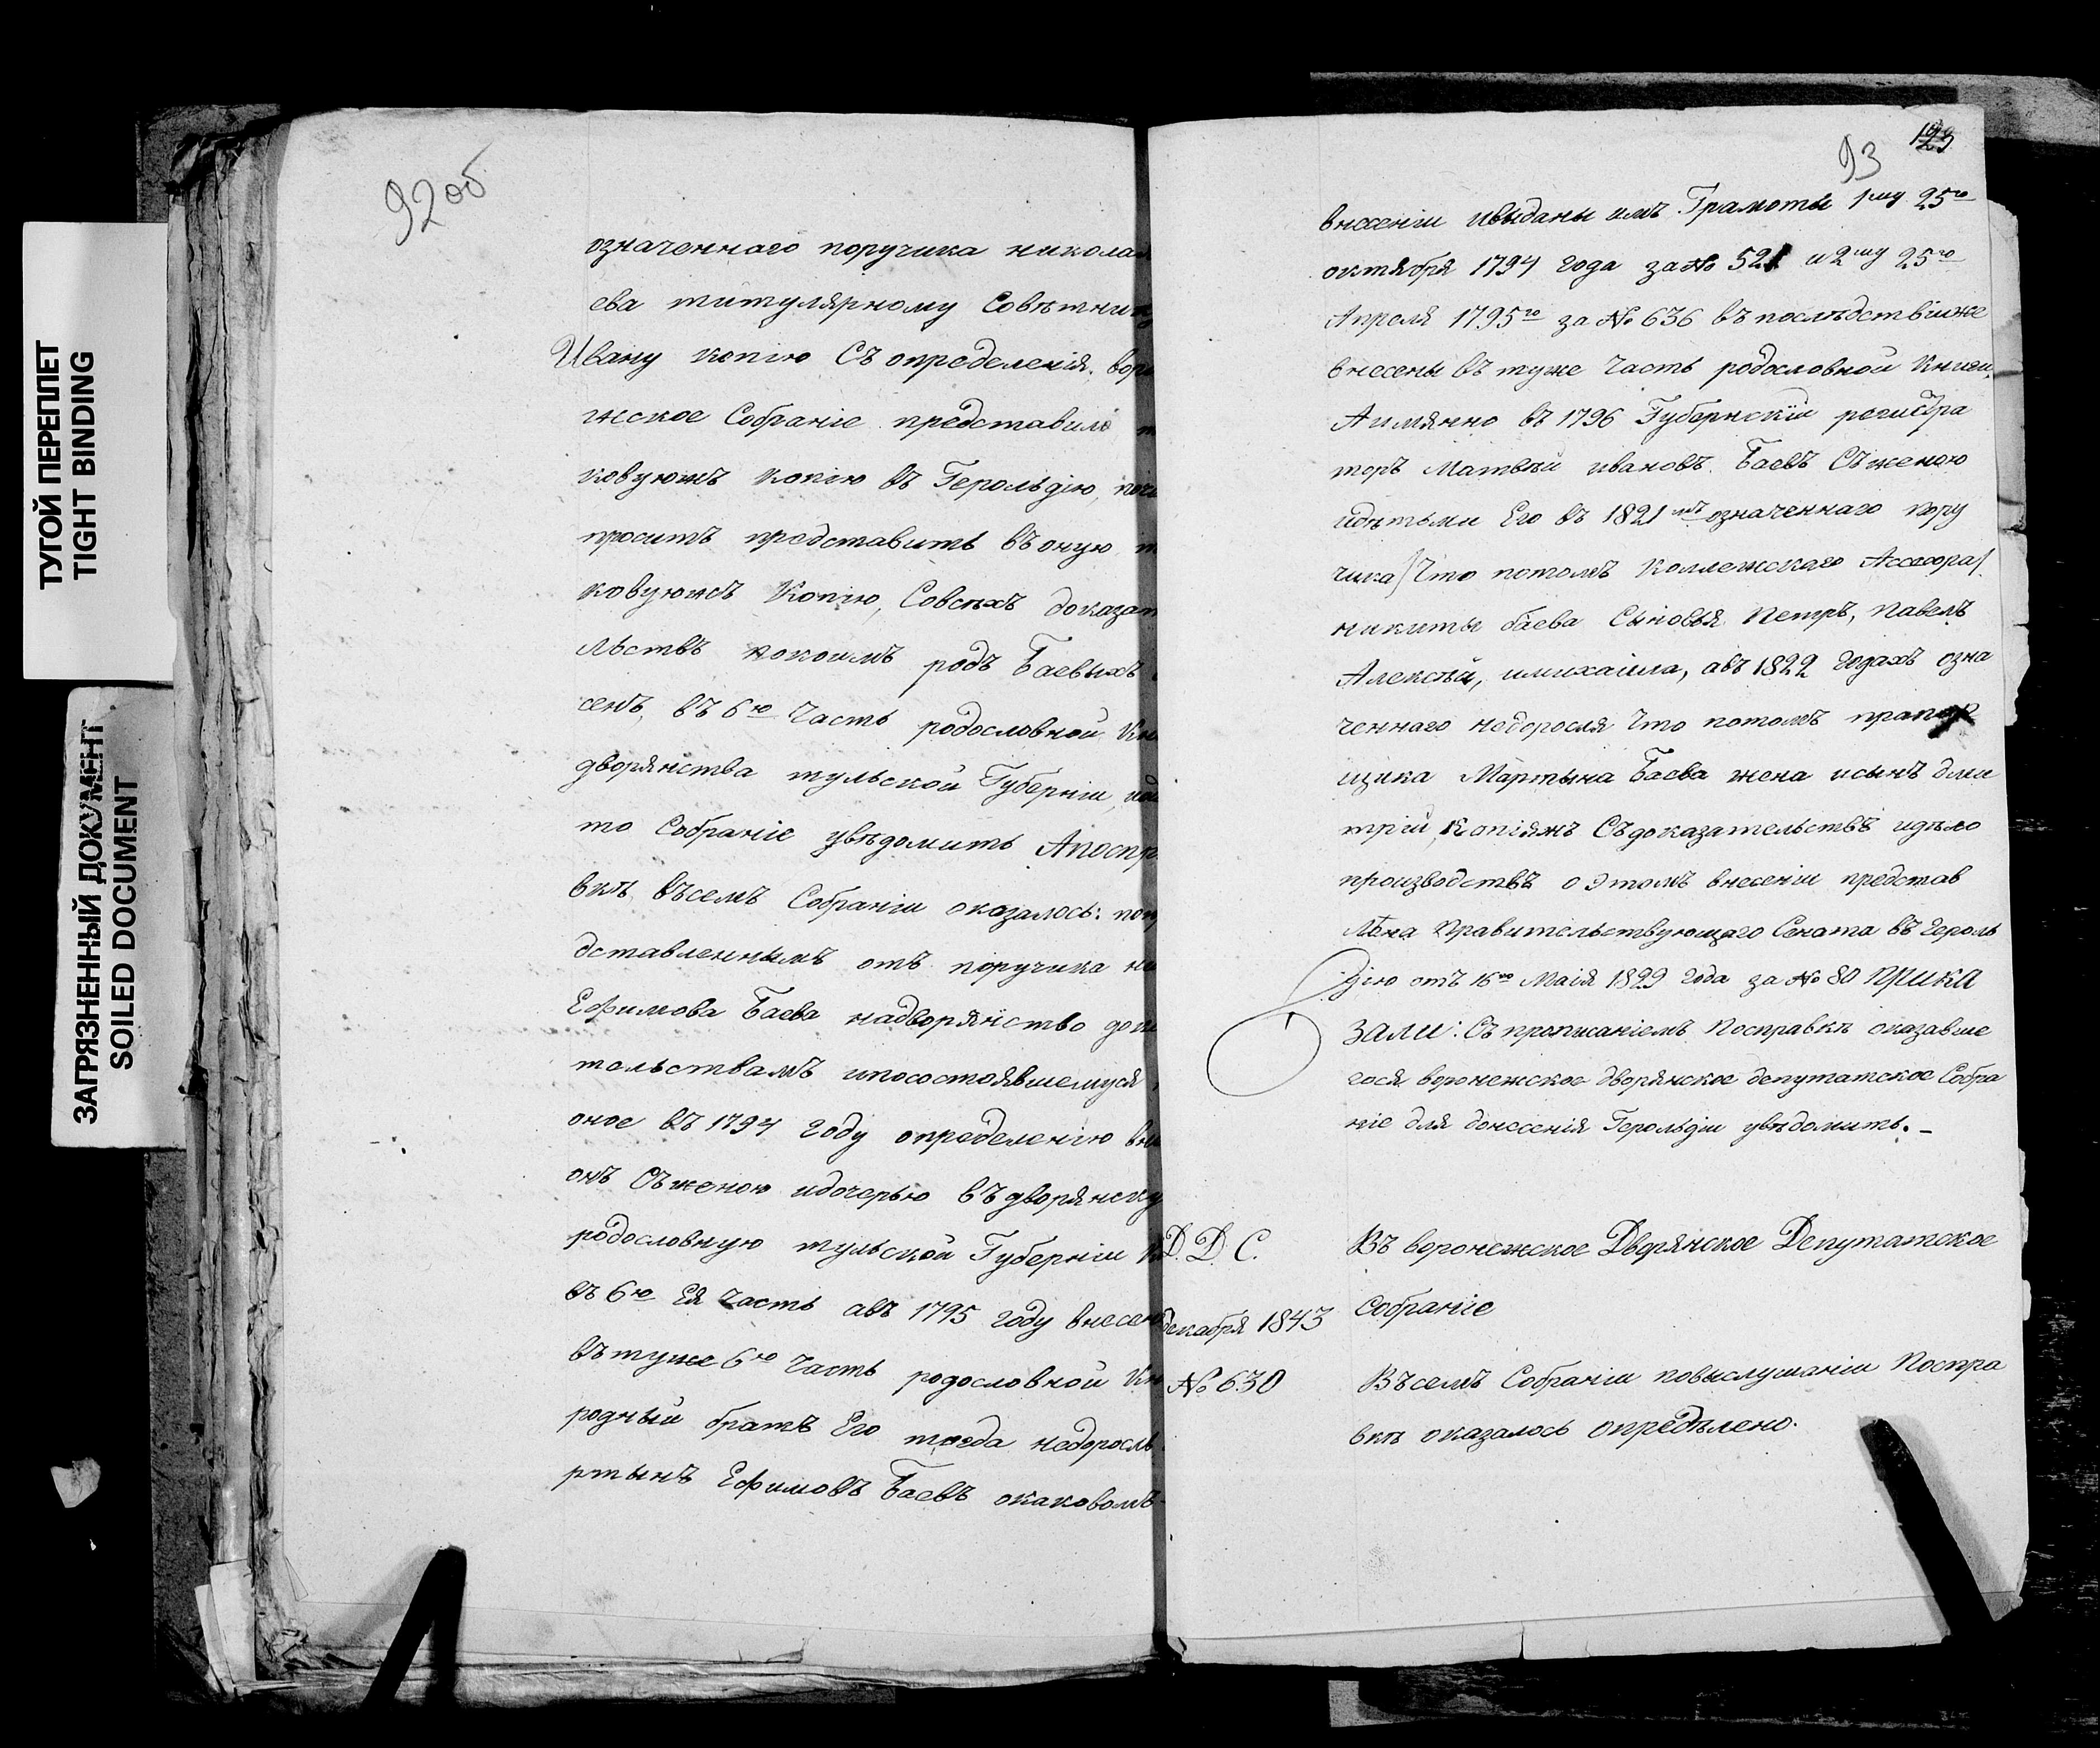 ТУГОЙ ПЕРЕПЛЕТ
TIGHT BINDING
ЗАГРЯЗНЕННЫЙ ДОКУМЕНТ
SOILED DOCUMENT
92 об
означеннаго поручика никола
ева титулярному Совѣтни
Ивану копію Съ опредѣленія. вор
жское Собраніе представило
ковуюжъ копію въ Герольдію,
проситъ представить въ оную
ковуюжъ Копію, Совсѣхъ доказат
льствъ покоимъ родъ Баевыхъ
сенъ, въ 6ю Часть родословной Кни
дворянства тульской Губерніи
то Собраніе увѣдомить Апоспр
вкѣ въсемъ Собраніи оказалось: по
дставленнымъ отъ поручика ни
Ефимова Баева надворянство дока
тельствамъ ипосостоявшемуся
оное въ 1794 году опредѣленію вн
онъ Съженою идочерью въ дворянску
родословную тульской Губерніи
въ 6ю Ея Часть авъ 1795 году внесен
въ туже 6ю Часть родословной Кн
родный братъ Его тогда недоросль
ртынъ Ефимовъ Баевъ окаковомъ
93
123
внесеніи ивыданы имъ Грамоты 1му 25го
октября 1794 года за № 521 и 2му 25го
Апреля 1795го за № 636 въ послѣдствіиже
внесены въ туже Часть родословной Книги,
Аимянно въ 1796 Губернскій регистра
торъ Матвѣй ивановъ Баевъ Съженою
идѣтьми Его въ 1821мъ означеннаго пору
чика /Что потомъ коллежскаго Ассесора/
никиты баева Сыновья Петръ, павелъ
Алексѣй, имихаила, авъ 1822 годахъ озна
ченнаго недоросля Что потомъ прапор
щика Мартына Баева жена исынъ дми
трій, Копіяжъ Съдоказательствъ идѣло
производствъ о этомъ внесеніи представ
лѣна Правительствующаго Сената въ Героль
дію отъ 16го Маія 1829 года за № 80 прика
зали: Съ прописаніемъ Посправкѣ оказавше
гося воронежское дворянское депутатское Собра
ніе для донесенія Герольдіи увѣдомить. -
Д. Д. С.
Въ воронежское Дворянское Депутатское
Собраніе
декабря 1843
№ 630
Въсемъ Собраніи повыслушаніи Поспра
вкѣ оказалось опредѣлено.